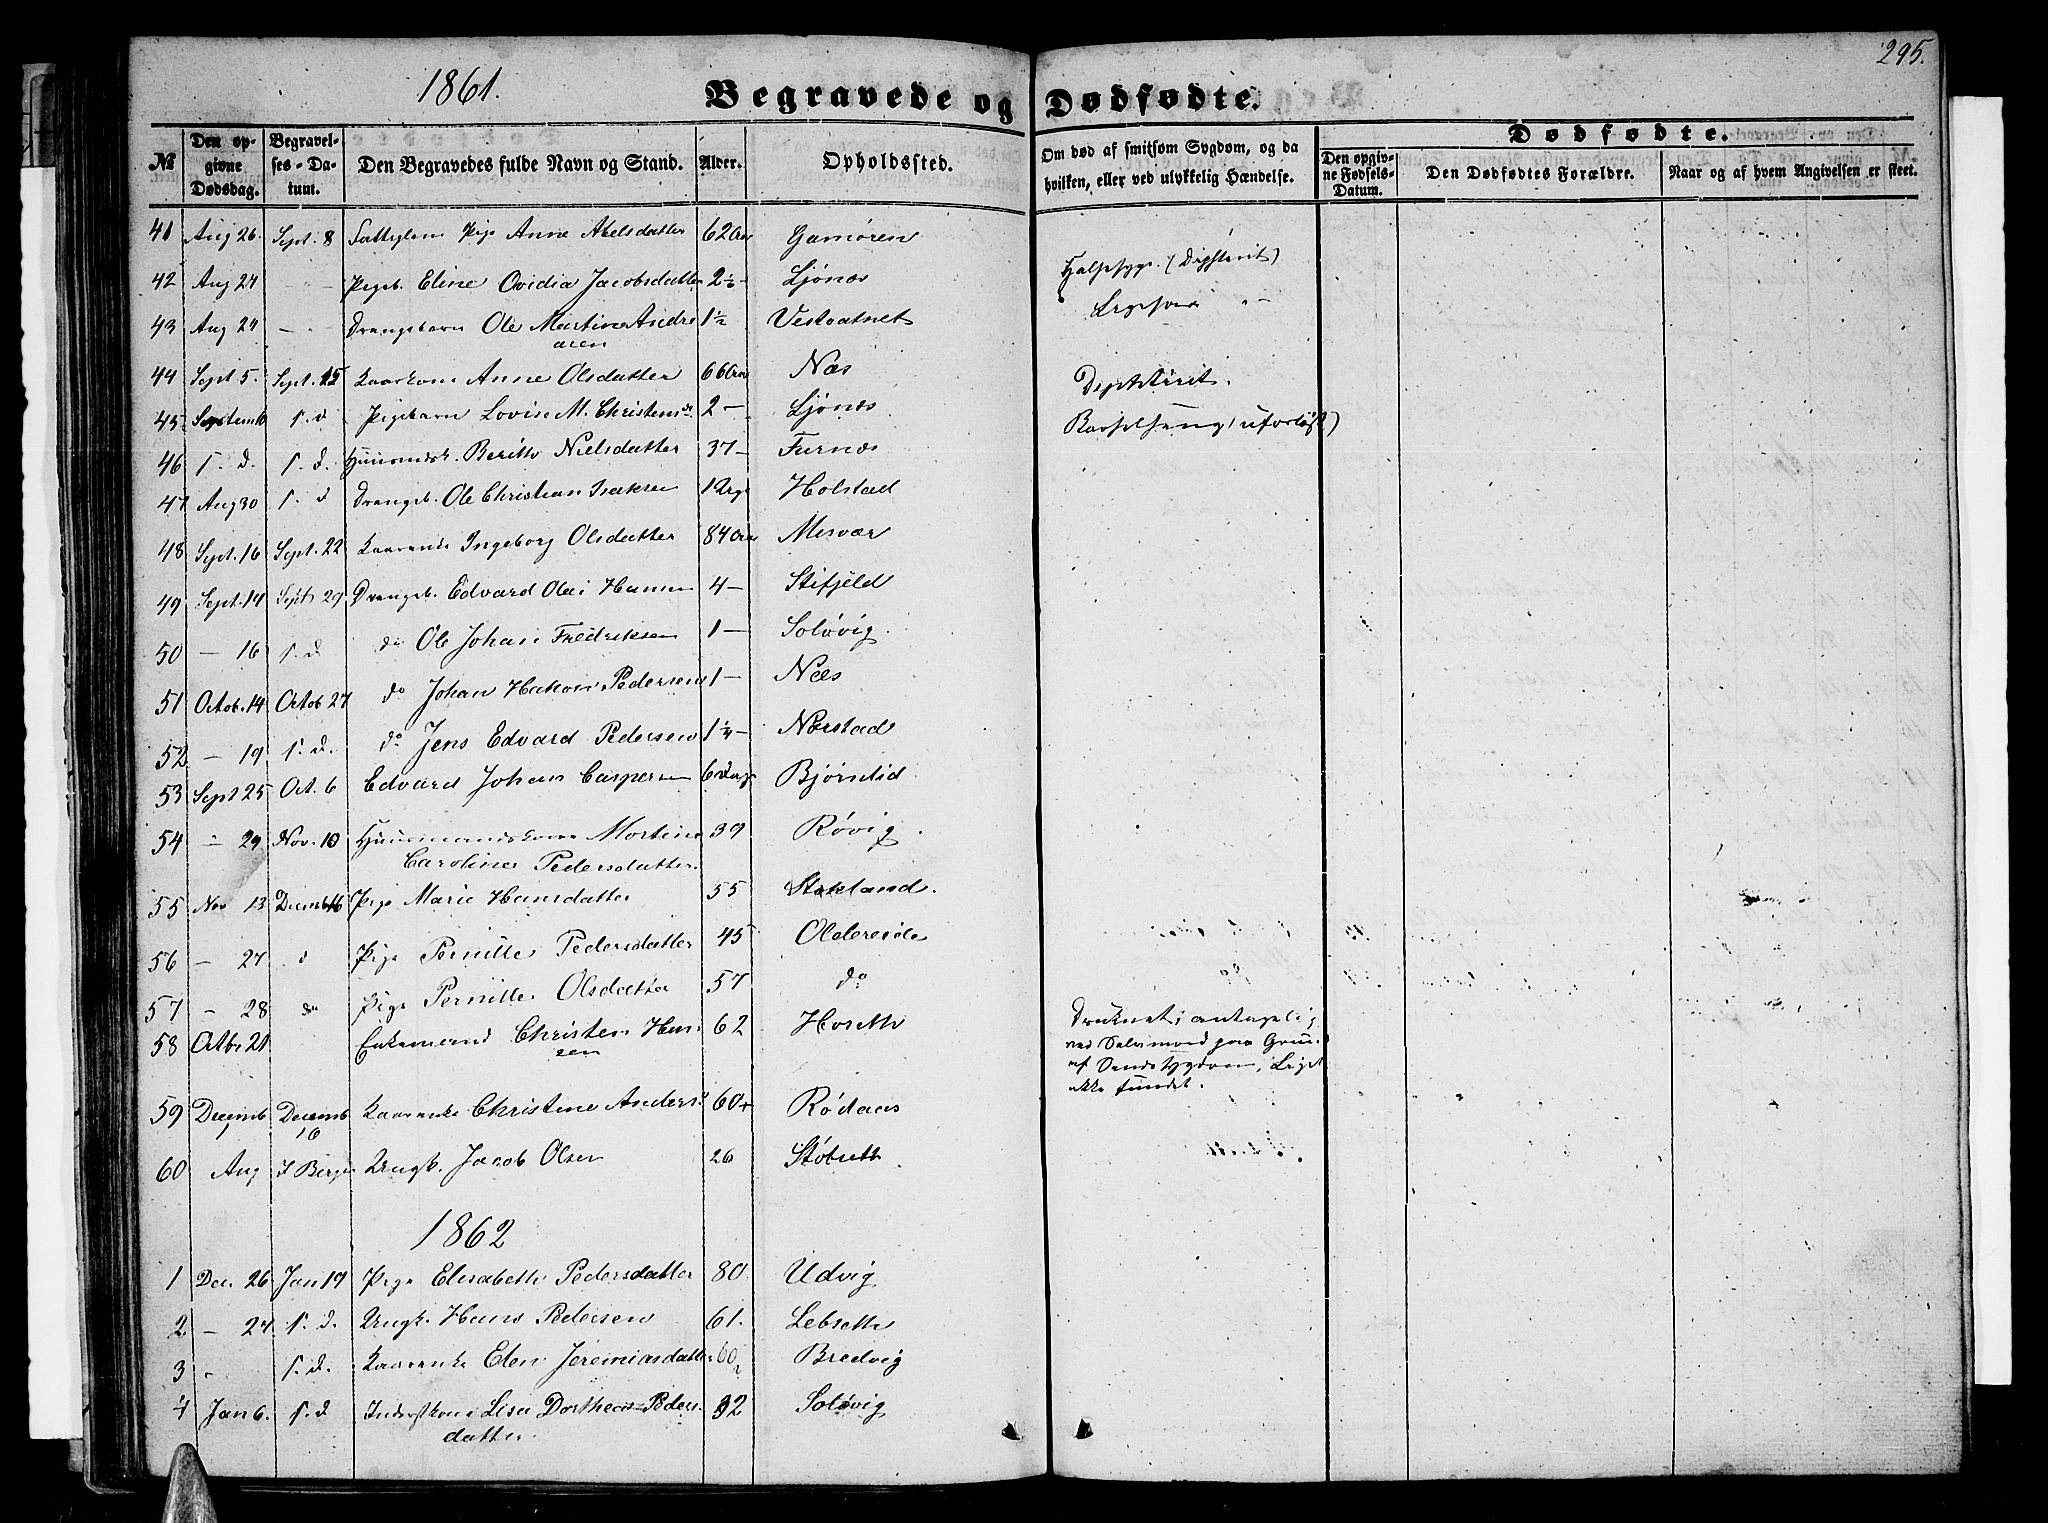 295.
1861.
Begravede og Dødfødte.
№
Den opgivne Dødsdag.
Begravelses-Datum.
Den Begravedes fulde Navn og Stand.
Alder.
Opholdssted.
Om død af smitsom Sygdom, og da hvilken, eller ved ulykkelig Hændelse.
Dødfødte.
Den opgivne Fødsels-Datum.
Den Dødfødtes Forældre.
Naar og af hvem Angivelsen er skeet.
41 Aug 26. Sept. 8 Pige Anne Abelsdatter 62 Gamøren
42 Aug 24 Pigeb. Eline Ovidia Jacobsdatter 2½ Ljönæs Halssyge. (Dipfterit)
43 Aug 24 Drengebarn Ole Martin Andreasen 1½ Vestvatnet
44 Sept 5. Sept. 15 Anne Olsdatter 66 Næs
45 1. d Pigebarn Lovise M. Christensd. 2 — Ljönes Diphterit.
46 1. d. 1. d. Huusmdsk. Beritte Nielsdatter 37 — Furnæs Barselseng (uforløst)
47 Aug 30 1. d Drengeb. Ole Christian Isaksen Holstad
48 Sept. 16 Sept. 22 Kaarenke Ingeborg Olsdatter 84 Misvær
49 Sept. 14 Sept 29 Drengeb. Edvard Olai Hansen 4 — Stifjeld
50 — 16 1. d do Ole Johan Fredriksen 1 — Soløvig.
51 Octob. 14 Octob 27 do Johan Hakon Pedersen 1 — Næs
52 — 19 1. d. do Jens Edvard Pedersen 1¼ — Nærstad
53 Sept 25 Oct. 6 Edvard Johan Caspersen 6 Dage Bjørnlid
54 — 29 Nov. 10 Huusmandskone Martine Caroline Pedersdatter. 39 Røvig.
55 Nov 13 Decemb 16 Pige Marie Hansdatter 55 Stokland.
56 — 27 d Pige Pernille Pedersdatter 45 Oldereide
57 — 28 do Pige Pernille Olsdatter 57 do
58 Octbr 21 Enkemand Christen Hansen 62 Horseth Druknet; antagelig
ved Selvmord paa Grund
af Sindssygdom, Liget
ikke fundet.
59 Decemb 1 Decemb 16 Kaarenke Christine Andersd 60 Rødaas
60 Aug I Bergen Ungk. Jacob Olsen 26 Støbseth
1862
1 Dec. 26 Jan 19 Pige Elisabeth Pedersdatter 80 Udvig
2 — 27 1. d. Ungk. Hans Pedersen 61. Lebseth
3 1. d. Kaarenke Elen Jeremiasdatter 60 Bredvig
4 Jan 6. 1. d Inderstkone Lisa Dorthea Pedersdatter. 32 Soløvig